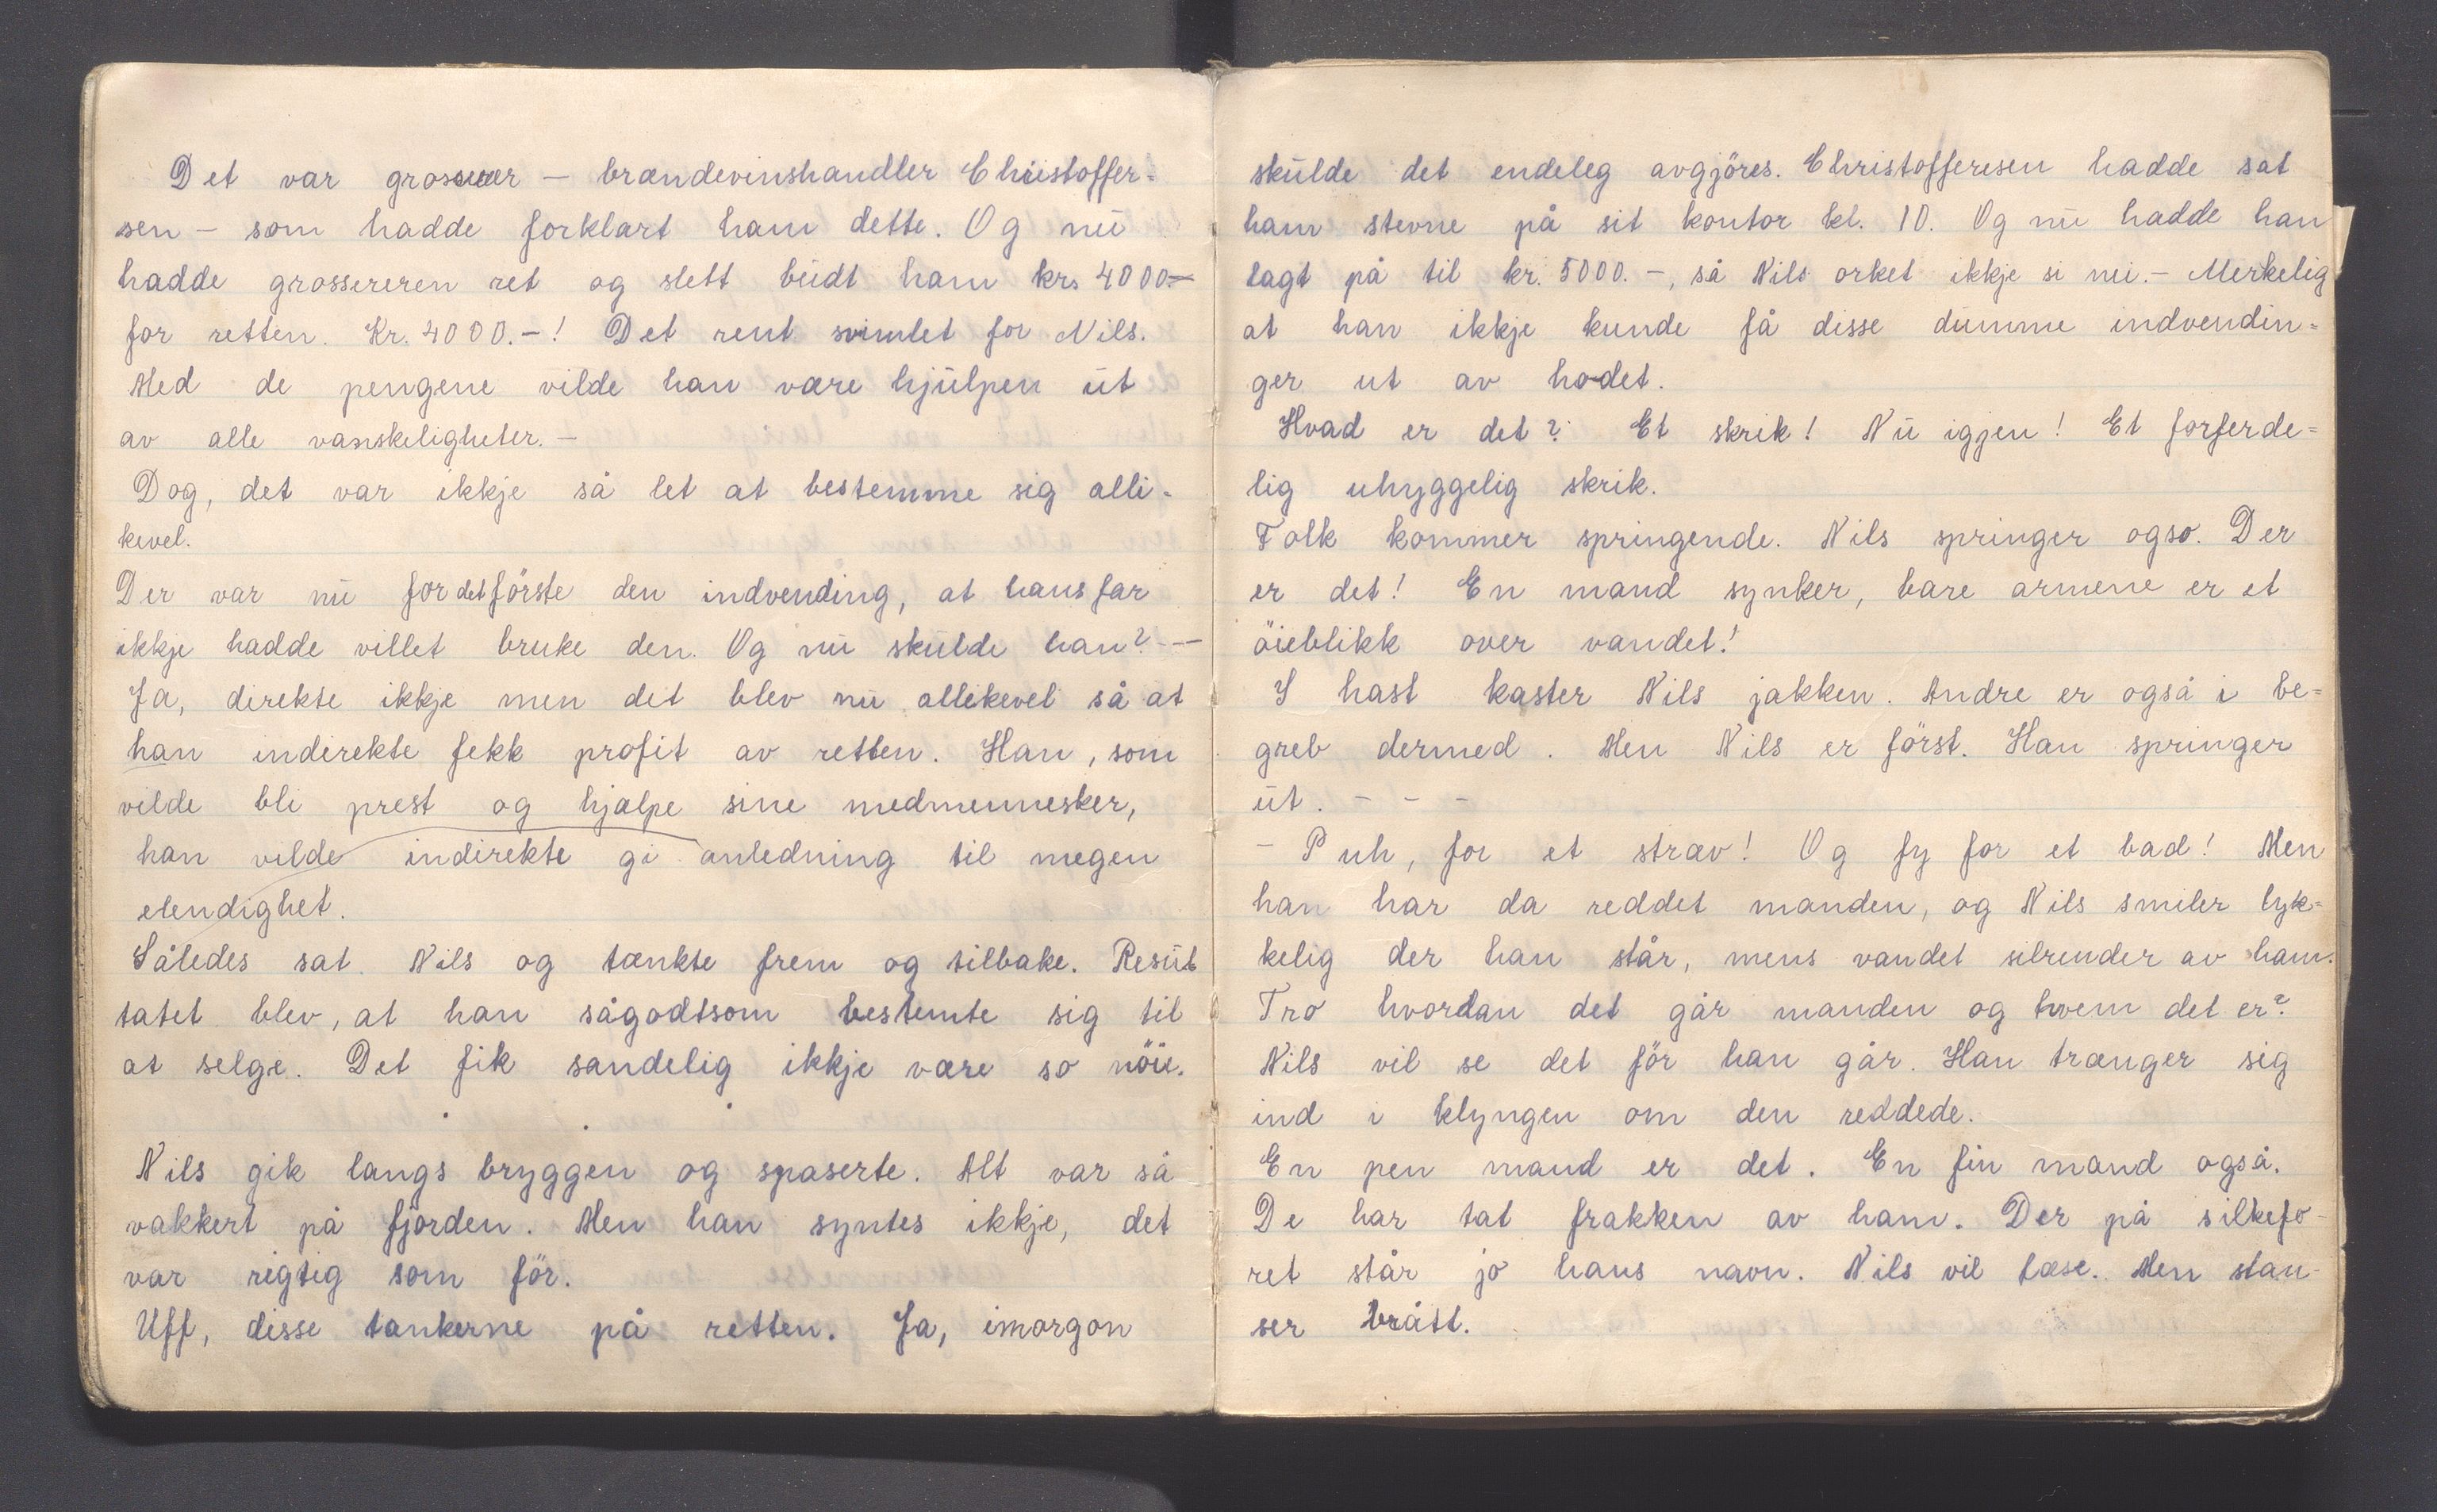 Det var grosserer - brændevinshandler Christoffer-
sen - som hadde forklart ham dette. Og nu
hadde grossereren ret og slett budt ham krs 4000.-
for retten. Kr. 4000.-! Det rent svimlet for Nils.
Med de pengene vilde han være hjulpen ut
av alle vanskeligheter. -
Dog, det var ikkje så let at bestemme sig alli-
kevel.
Der var nu for det förste den indvending, at hans far
ikkje hadde villet bruke den. Og nu skulde han? --
Ja, direkte ikkje men det blev nu allikevel så at
han indirekte fekk profit av retten. Han, som
vilde bli prest og hjælpe sine medmennesker,
han vilde indirekte gi anledning til megen
elendighet.
Således sat Nils og tænkte frem og tilbake. Resul
tatet blev, at han sågodtsom bestemte sig til
at selge. Det fik sandelig ikkje være so nöie.
Nils gik langs bryggen og spaserte. Alt var så
vakkert på fjorden. Men han syntes ikkje, det
var rigtig som för.
Uff, disse tankerne på retten. Ja, imorgon
skulde det endeleg avgjöres. Christofferesen hadde sat
ham stevne på sit kontor kl. 10. Og nu hadde han
lagt på til kr. 5000.-, så Nils orket ikkje si nei. - Merkelig
at han ikkje kunde få disse dumme indvendin=
ger ut av hodet.
Hvad er det? Et skrik! Nu igjen! Et forferde=
lig uhyggelig skrik.
Folk kommer springende. Nils springer ogso. Der
er det! En mand synker, bare armene er et
öieblikk over vandet!
I hast kaster Nils jakken. Andre er også i be=
greb dermed. Men Nils er först. Han springer
ut. - - -
- Puh, for et stræv! Og fy for et bad! Men
han har da reddet manden, og Nils smiler lyk=
kelig der han står, mens vandet silrender av ham.
Tro hvordan det går manden og hvem det er?
Nils vil se det för han går. Han trænger sig
ind i klyngen om den reddede.
En pen mand er det. En fin mand også.
De har tat frakken av ham. Der på silkefo-
ret står jo hans navn. Nils vil læse. Men stan-
ser brått.